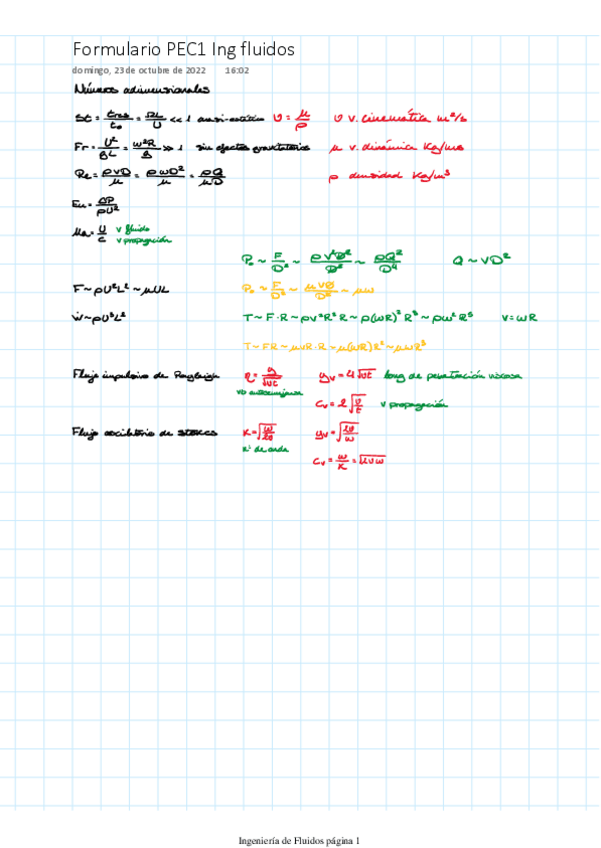 Formulario PEC1 Ing fluidos
domingo, 23 de octubre de 2022 16:02
Números adimensionales
St = = ΩL/U << 1 ν = μ/ρ ν v. cinemática m²/s
Fr = U²/gL = ω²R/g >> 1 sin efectos gravitatorios μ v. dinámica Kg/ms
Re = ρvD/μ = ρωD²/μ = ρQ/μD ρ densidad Kg/m³
Eu = ΔP/ρU²
Ma = U/c v fluido
v propagación
P₀ ~ F/D² ~ ρv²D²/D² ~ ρQ²/D⁴ Q ~ vD²
F ~ ρU²L² ~ μUL P₀ ~ F/D² ~ μvD/D² ~ μω
Ẇ ~ ρU³L² T ~ F·R ~ ρv²R²R ~ ρ(ωR)²R³ ~ ρω²R⁵ v = ωR
T ~ FR ~ μvR·R ~ μ(ωR)R² ~ μωR³
Flujo impulsivo de Rayleigh η = y/√νt yᵥ = 4√νt long de penetración viscosa
cᵥ = 2√ν/t v propagación
Flujo oscilatorio de Stokes K = √ω/2ν yᵥ = √2ν/ω
nº de onda
cᵥ = ω/K = √2νω
Ingeniería de Fluidos página 1